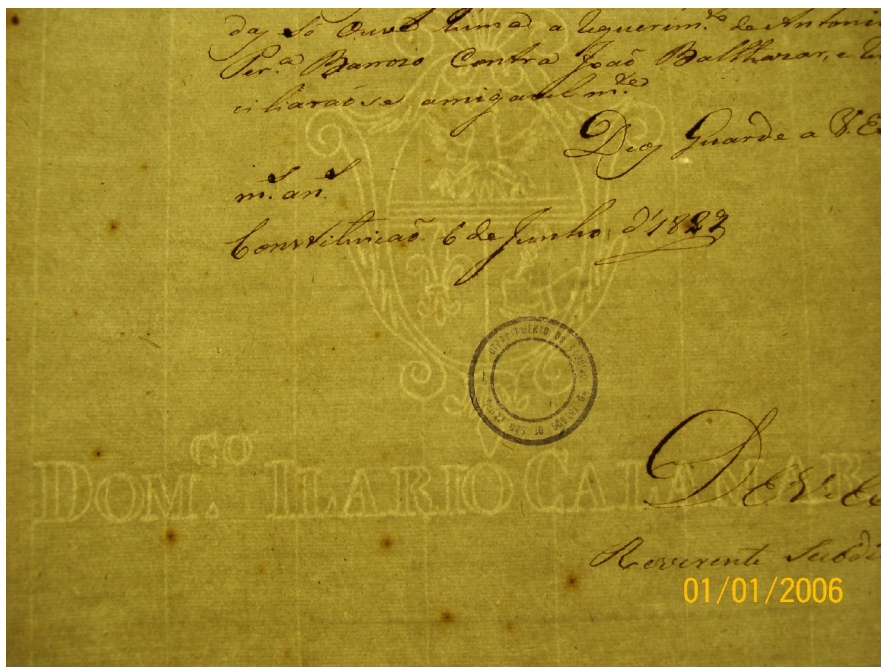 das só ouve huma a Requerim.to de Antonio
Per.a Barrozo Contra João Balthazar, e
ciliarão se amigavelm.te
Deos Guarde a V. Ex
m.s an.s
Constituicaõ 6 de Junho d'1829
DOM.CO ILARIO CALAMAR
De V. Ex
Reverente Subdi
01/01/2006